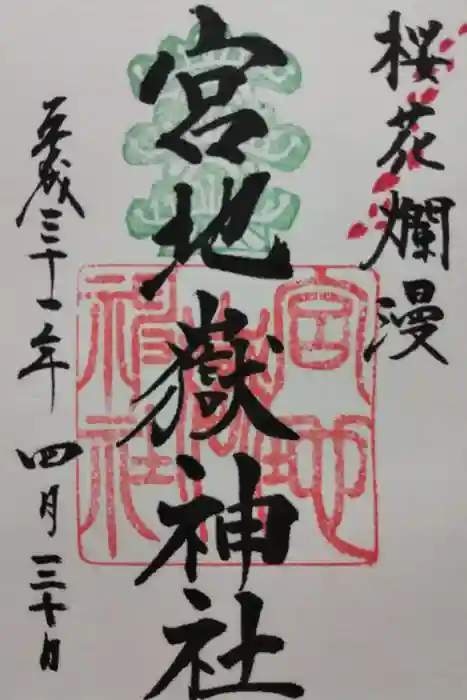 桜花爛漫
宮地嶽神社
平成三十一年四月三十日
宮地
嶽
神社